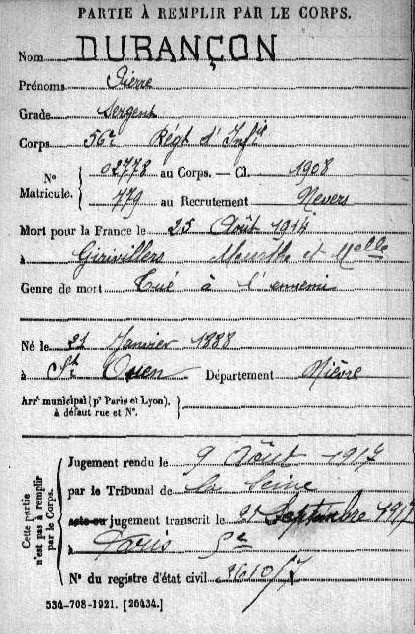 PARTIE À REMPLIR PAR LE CORPS.
Nom DURANÇON
Prénoms Pierre
Grade Sergent
Corps 56e Régt d'Infie
No Matricule. 02778 au Corps. — Cl. 1908
779 au Recrutement Nevers
Mort pour la France le 25 Août 1914
à Girivillers Meurthe et Melle
Genre de mort Tué à l'ennemi
Né le 21 Janvier 1888
à St Ouen Département Nièvre
Arrt municipal (pr Paris et Lyon), à défaut rue et No.
Cette partie n'est pas à remplir par le Corps.
Jugement rendu le 9 Août 1917
par le Tribunal de la Seine
acte ou jugement transcrit le 21 Septembre 1917
à Paris
No du registre d'état civil
534-708-1921. [26434.]